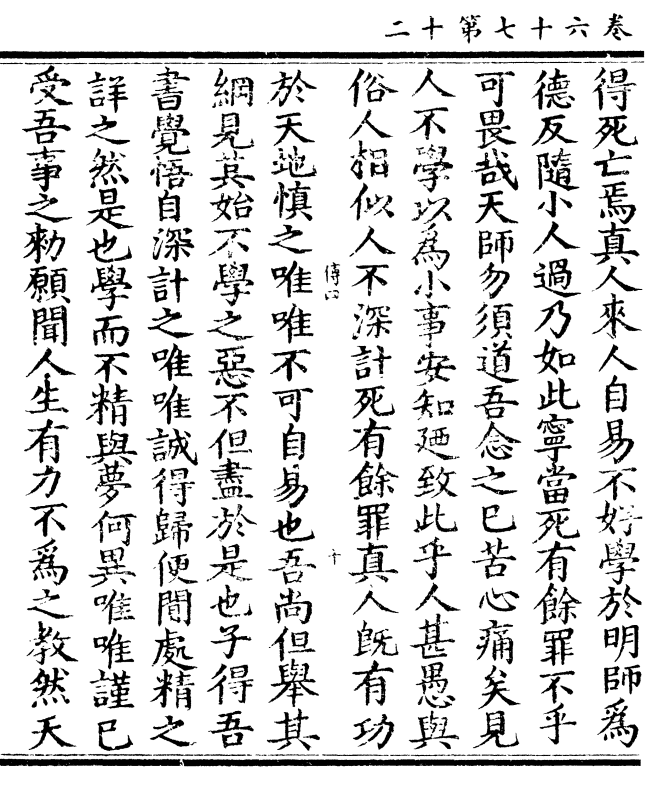 卷六十七第十二
得死亡焉真人來人自易不好學於明師爲
德反隨小人過乃如此寧當死有餘罪不乎
可畏哉天師勿須道吾念之已苦心痛矣見
人不學以爲小事安知廼致此乎人甚愚與
俗人相似人不深計死有餘罪真人旣有功
傅四
十
於天地慎之唯唯不可自易也吾尚但舉其
綱見其始不學之惡不但盡於是也子得吾
書覺悟自深計之唯唯誠得歸便閒處精之
詳之然是也學而不精與夢何異唯唯謹已
受吾事之勑願聞人生有力不爲之教然天